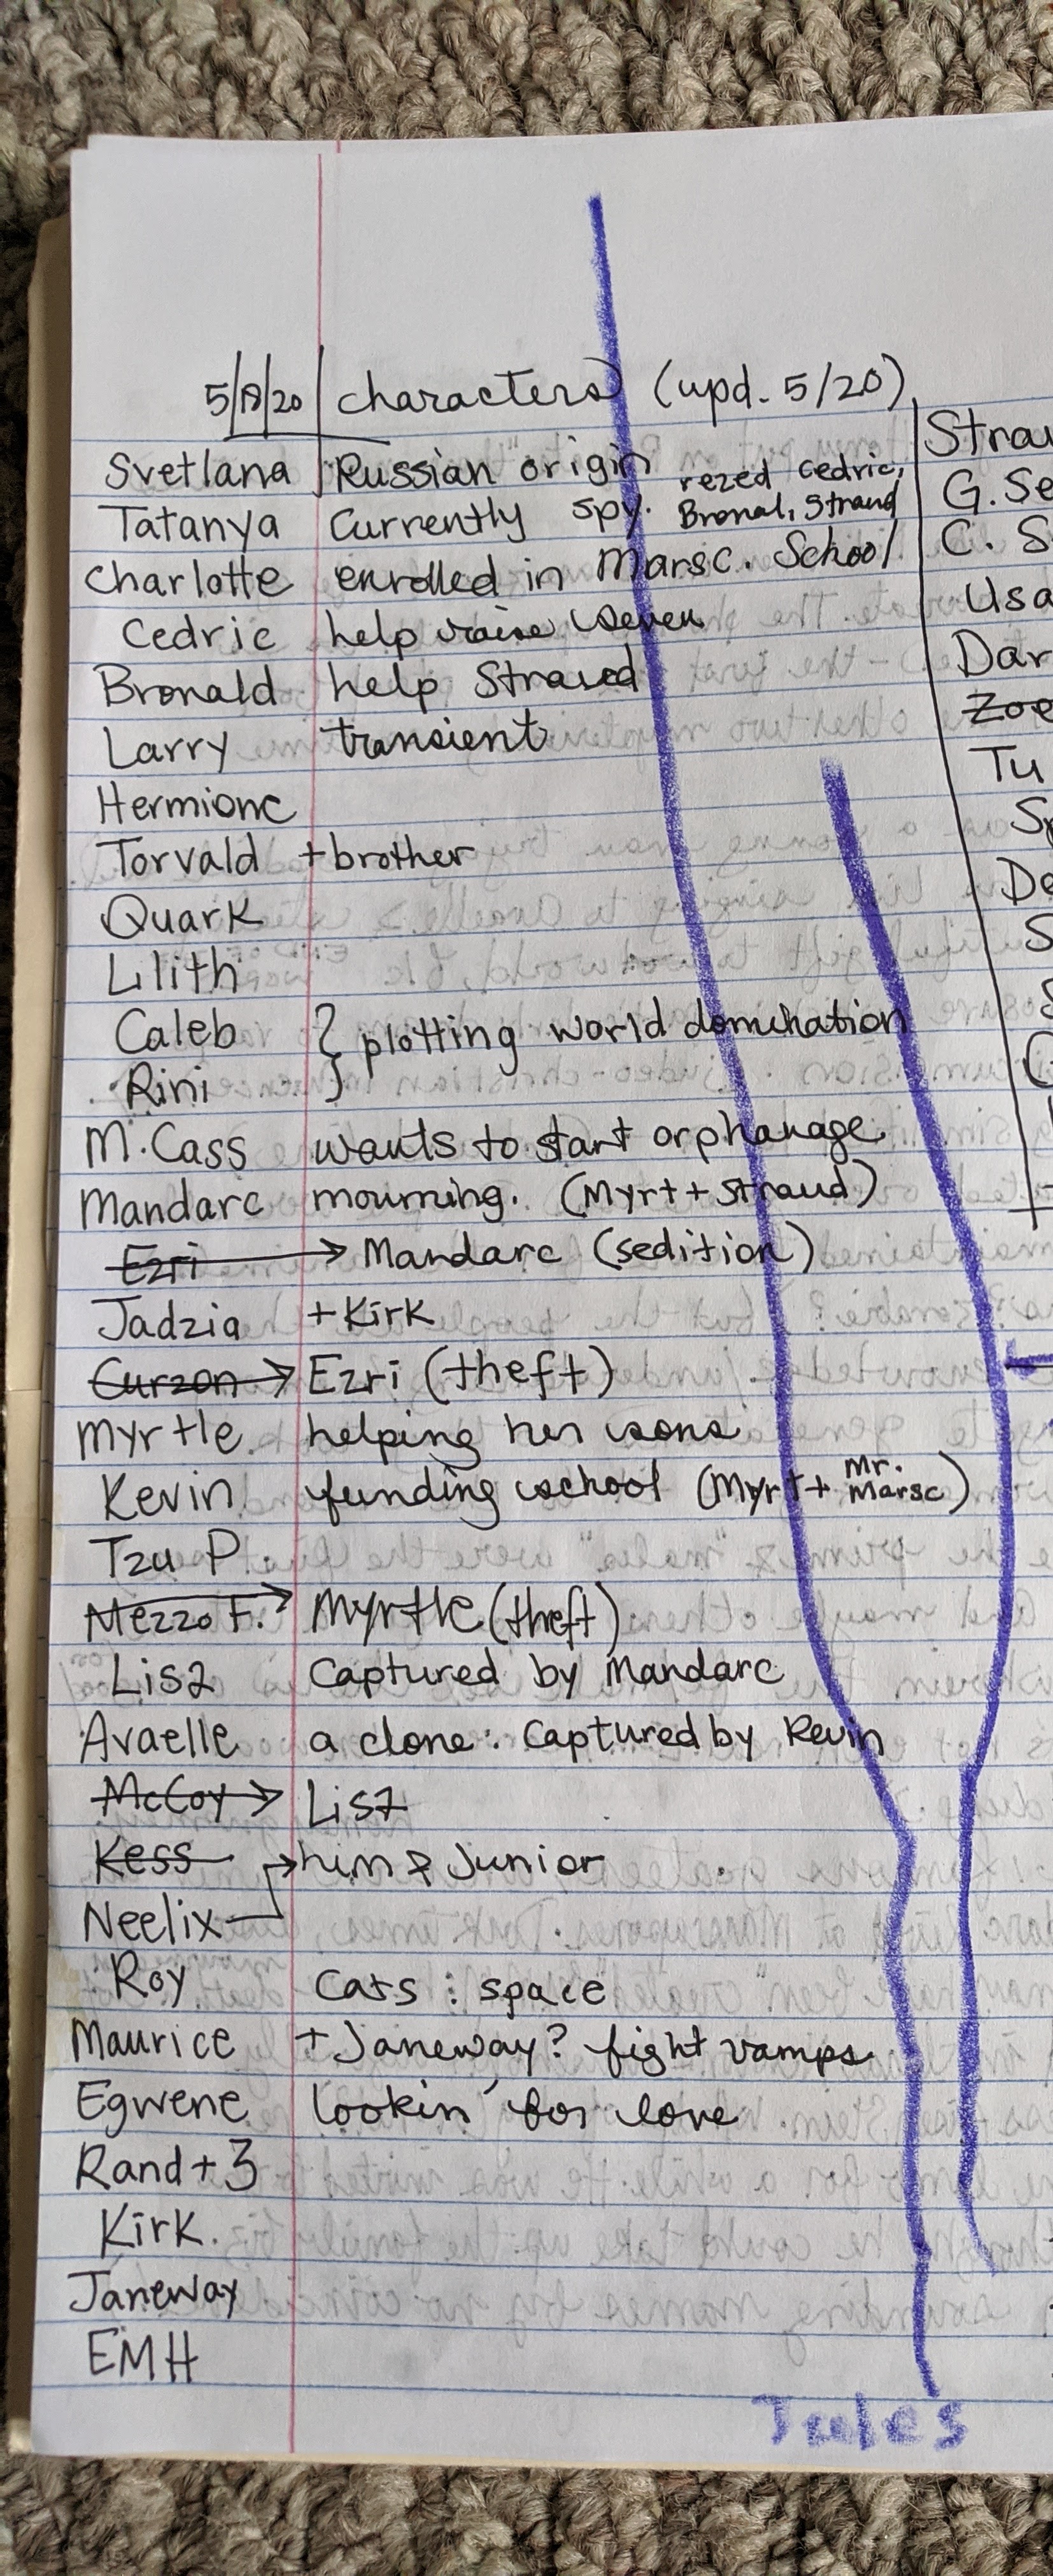 5/18/20 characters (upd. 5/20)
Svetlana Russian origin rezed Cedric,
Tatanya Currently spy. Bronal, Straud
Charlotte enrolled in Marsc. School
Cedric help raise seven
Bronald help Straud
Larry transient
Hermione
Torvald + brother
Quark
Lilith
Caleb } plotting world domination
Rini
M. Cass wants to start orphanage
Mandarc mourning. (Myrt + Straud)
Ezri → Mandarc (sedition)
Jadzia + Kirk
Curzon → Ezri (theft)
Myrtle helping her sons
Kevin funding school (Myrt + Mr. Marsc)
Tzu P.
Mezzo F. → Myrtle (theft)
Lisz Captured by Mandarc
Avaelle a clone: Captured by Kevin
McCoy → Lisz
Kess
Neelix → him & Junior
Roy Cats : space
Maurice + Janeway? fight vamps
Egwene lookin' for love
Rand + 3
Kirk.
Janeway
EMH
Strau
G. Se
C. S
Usa
Dar
Zoe
Tu
De
S
Jules